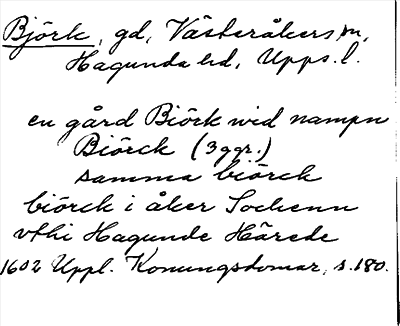 Björk, gd, Västeråkers sn,
Hagunda hd, Upps. l.
en gård Biörk wid nampn
Biörck (3 ggr.)
samma biörck
biörck i åker Sochenn
vthi Hagunde Härede
1602 Uppl. Konungsdomar, s. 180.